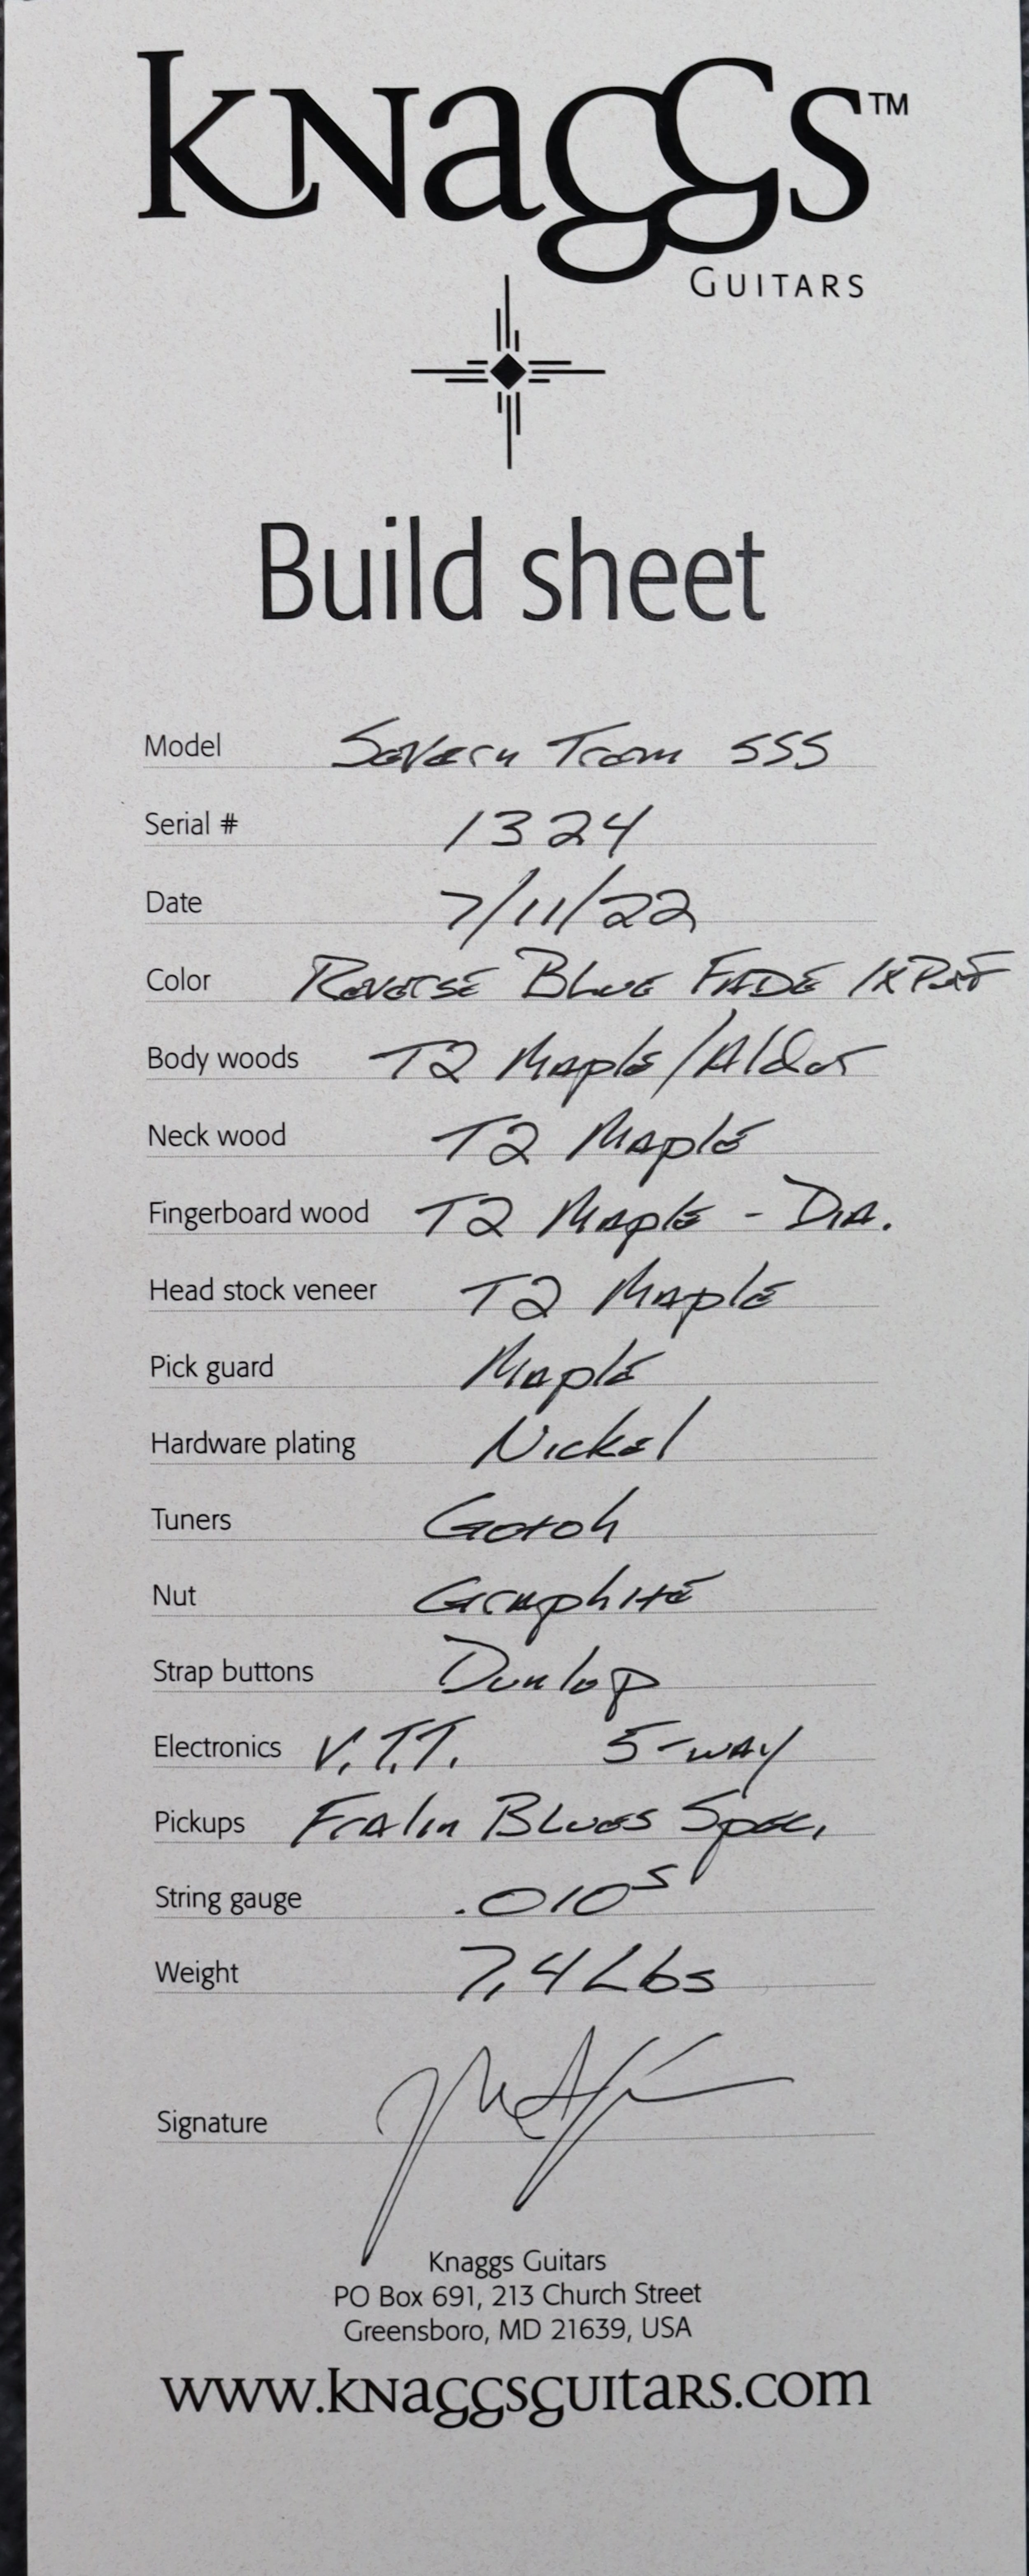 KNaGGS™
GUITARS
Build sheet
Model Severn Trem SSS
Serial # 1324
Date 7/11/22
Color Reverse Blue Fade
Body woods T2 Maple/Alder
Neck wood T2 Maple
Fingerboard wood T2 Maple - Dia.
Head stock veneer T2 Maple
Pick guard Maple
Hardware plating Nickel
Tuners Gotoh
Nut Graphite
Strap buttons Dunlop
Electronics V.T.T. 5-way
Pickups Fralin Blues Spec.
String gauge .010s
Weight 7.4 Lbs
Signature
Knaggs Guitars
PO Box 691, 213 Church Street
Greensboro, MD 21639, USA
www.knaggsguitars.com